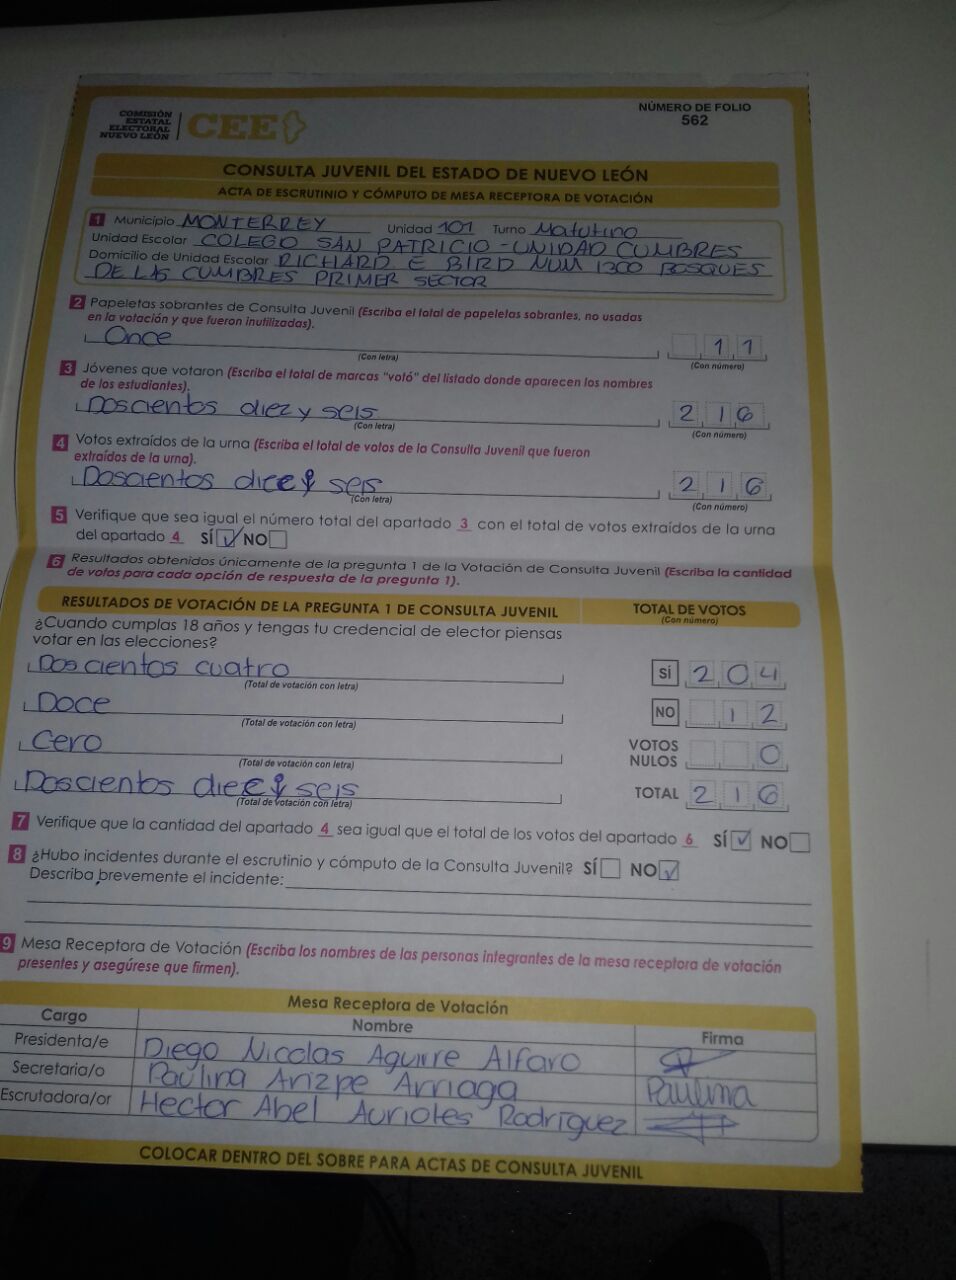 COMISIÓN
ESTATAL
ELECTORAL
NUEVO LEÓN
CEE
NÚMERO DE FOLIO
562
CONSULTA JUVENIL DEL ESTADO DE NUEVO LEÓN
ACTA DE ESCRUTINIO Y CÓMPUTO DE MESA RECEPTORA DE VOTACIÓN
1 Municipio MONTERREY Unidad 101 Turno Matutino
Unidad Escolar COLEGO SAN PATRICIO - UNIDAD CUMBRES
Domicilio de Unidad Escolar RICHARD E BIRD NUM 1300 BOSQUES
DE LAS CUMBRES PRIMER SECTOR
2 Papeletas sobrantes de Consulta Juvenil (Escriba el total de papeletas sobrantes, no usadas
en la votación y que fueron inutilizadas).
Once 11
(Con letra) (Con número)
3 Jóvenes que votaron (Escriba el total de marcas "votó" del listado donde aparecen los nombres
de los estudiantes).
Doscientos diez y seis 216
(Con letra) (Con número)
4 Votos extraídos de la urna (Escriba el total de votos de la Consulta Juvenil que fueron
extraídos de la urna).
Doscientos diec y seis 216
(Con letra) (Con número)
5 Verifique que sea igual el número total del apartado 3 con el total de votos extraídos de la urna
del apartado 4 SÍ ✓ NO
6 Resultados obtenidos únicamente de la pregunta 1 de la Votación de Consulta Juvenil (Escriba la cantidad
de votos para cada opción de respuesta de la pregunta 1).
RESULTADOS DE VOTACIÓN DE LA PREGUNTA 1 DE CONSULTA JUVENIL TOTAL DE VOTOS
(Con número)
¿Cuando cumplas 18 años y tengas tu credencial de elector piensas
votar en las elecciones?
Doscientos cuatro SÍ 204
(Total de votación con letra)
Doce NO 12
(Total de votación con letra)
Cero VOTOS NULOS 0
(Total de votación con letra)
Doscientos diec y seis TOTAL 216
(Total de votación con letra)
7 Verifique que la cantidad del apartado 4 sea igual que el total de los votos del apartado 6 SÍ ✓ NO
8 ¿Hubo incidentes durante el escrutinio y cómputo de la Consulta Juvenil? SÍ NO ✓
Describa brevemente el incidente:
9 Mesa Receptora de Votación (Escriba los nombres de las personas integrantes de la mesa receptora de votación
presentes y asegúrese que firmen).
Mesa Receptora de Votación
Cargo Nombre Firma
Presidenta/e Diego Nicolas Aguirre Alfaro
Secretaria/o Paulina Arizpe Arriaga Paulina
Escrutadora/or Hector Abel Aurioles Rodríguez
COLOCAR DENTRO DEL SOBRE PARA ACTAS DE CONSULTA JUVENIL